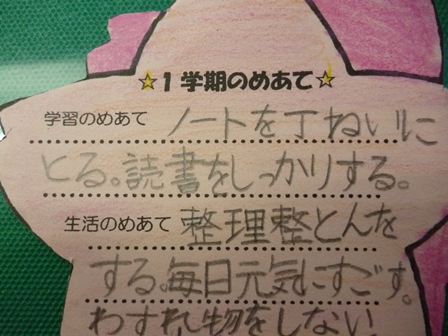 ☆1学期のめあて☆
学習のめあて ノートを丁ねいに
とる。読書をしっかりする。
生活のめあて 整理整とんを
する。毎日元気にすごす。
わすれ物をしない